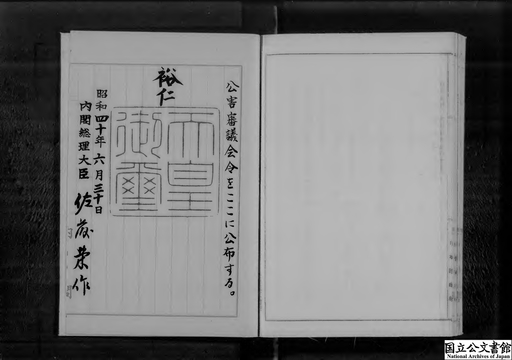 公害審議会令をここに公布する。
裕仁
天皇
御璽
昭和四十年六月三十日
内閣総理大臣 佐藤榮作
国立公文書館
National Archives of Japan